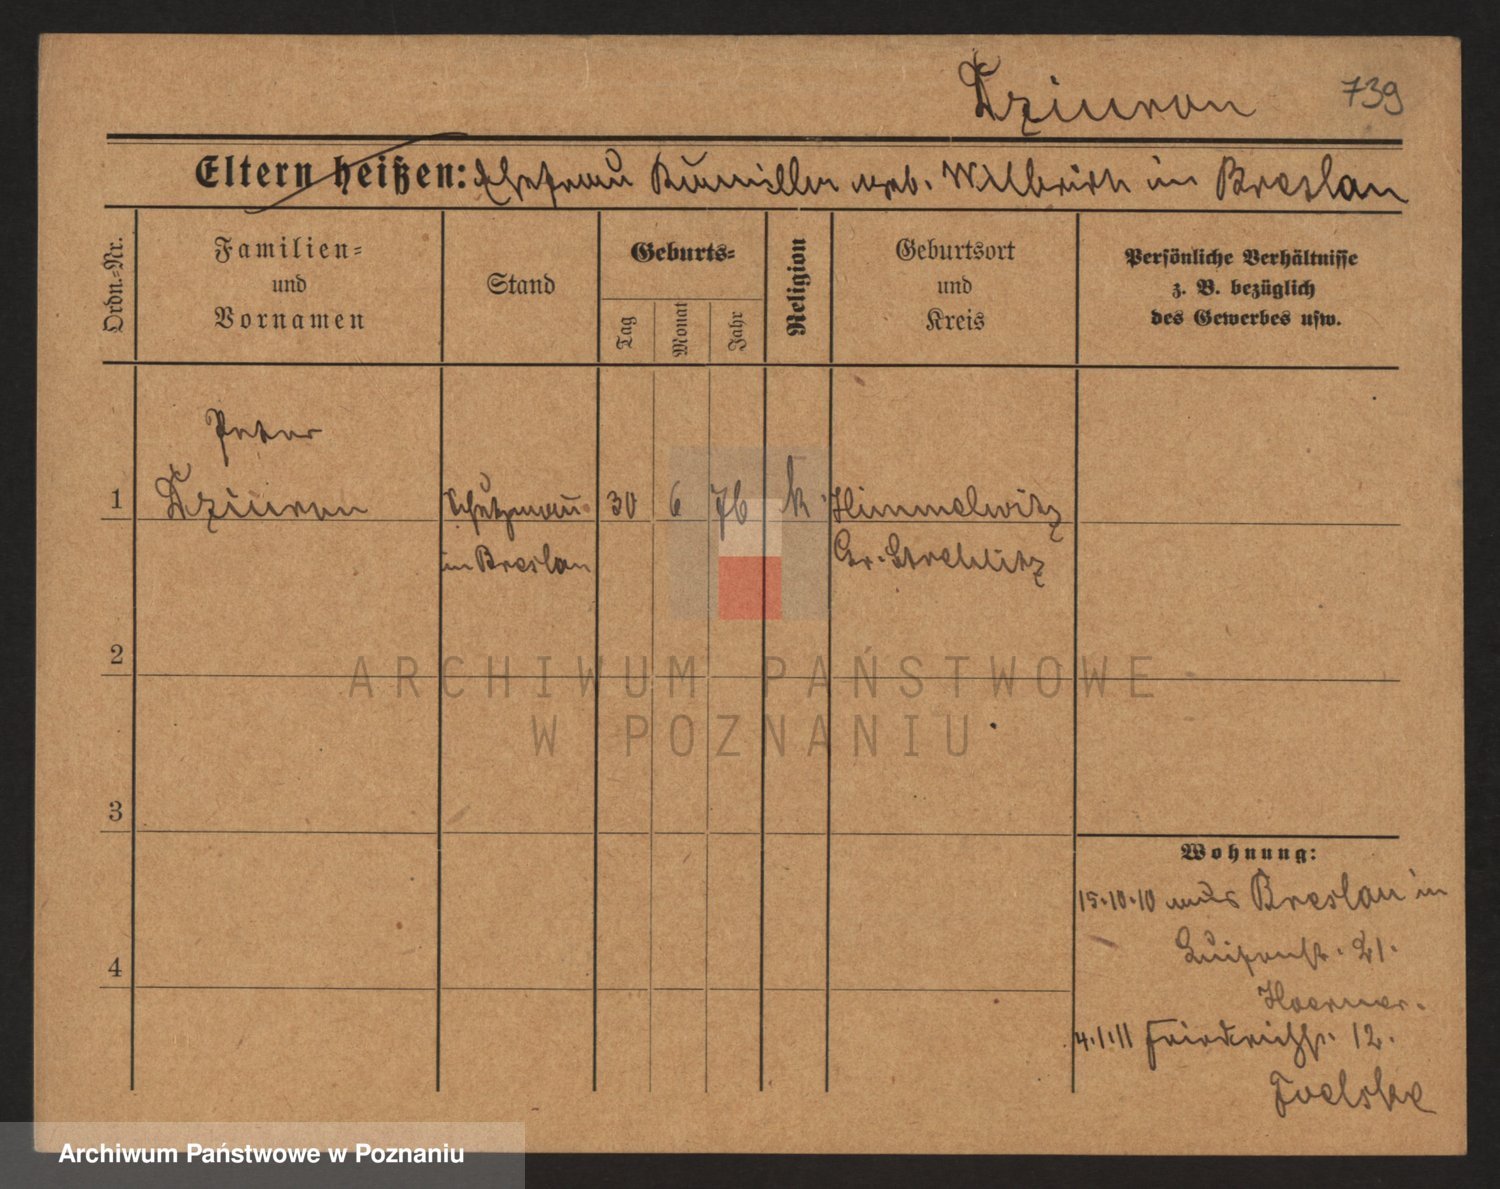 Dziuron 739
Eltern heißen: Ehefrau Kamilla geb. Wilbrich in Breslau
Ordn.-Nr.
Familien-
und
Vornamen
Stand
Geburts-
Tag
Monat
Jahr
Religion
Geburtsort
und
Kreis
Persönliche Verhältnisse
z. B. bezüglich
des Gewerbes usw.
Peter
1 Dziuron Schutzmann 30 6 76 k. Himmelwitz
in Breslau Gr. Strehlitz
2
3
4
Wohnung:
15.10.10 aus Breslau in
Luisenstr. 21.
Hoerner.
4.1.11 Friedrichstr. 12.
Foelske
ARCHIWUM PAŃSTWOWE
W POZNANIU
Archiwum Państwowe w Poznaniu